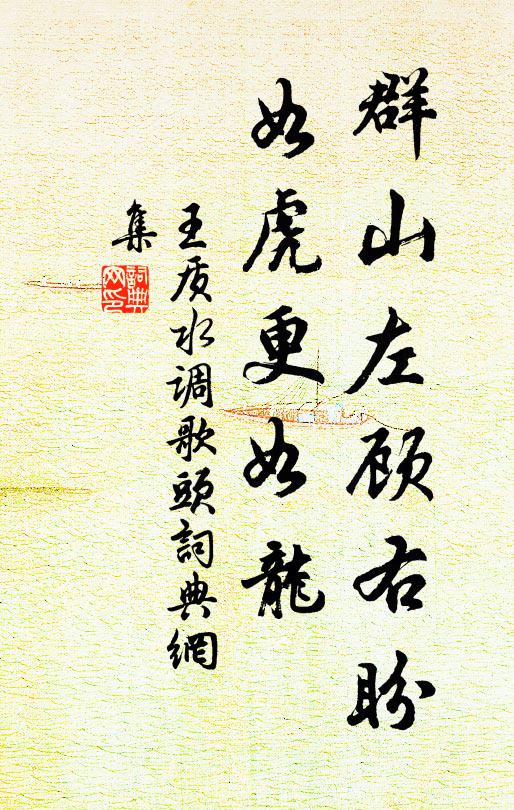 群山左顾右盼
如虎更如龍
王质水调歌头詞典網
集
詞典网印